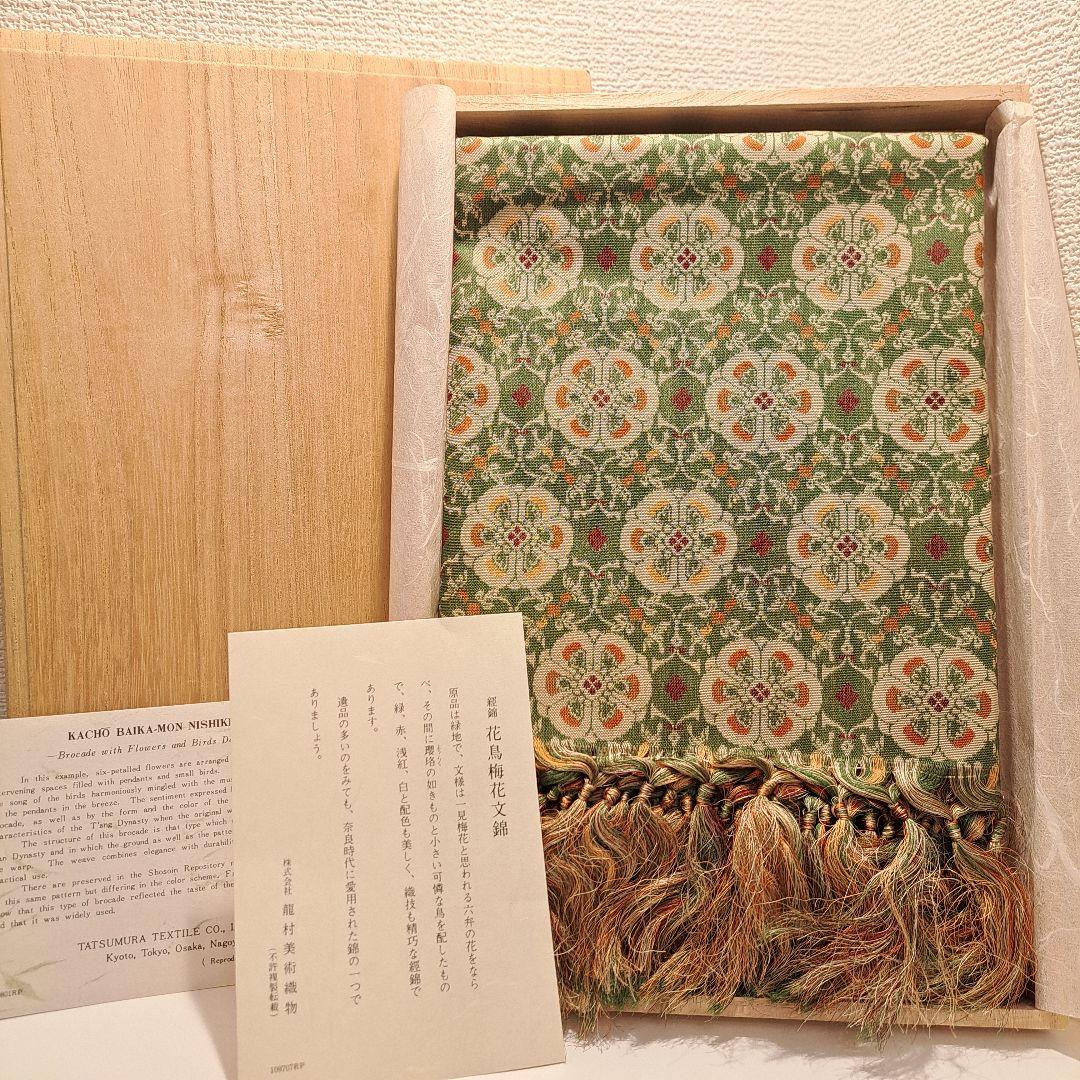 KACHŌ BAIKA-MON NISHIKI
—Brocade with Flowers and Birds
In this example, six-petalled flowers are arranged
tervening spaces filled with pendants and small birds.
song of the birds harmoniously mingled with the
the pendants in the breeze. The sentiment expressed
ocade, as well as by the form and the color of the
aracteristics of the T'ang Dynasty when the original
The structure of this brocade is that type which
an Dynasty and in which the ground as well as the
warp. The weave combines elegance with
actical use.
There are preserved in the Shosoin Repository
this same pattern but differing in the color scheme.
ow that this type of brocade reflected the taste of the
d that it was widely used.
TATSUMURA TEXTILE CO.,
Kyoto, Tokyo, Osaka,
801RP
經錦 花鳥梅花文錦
原品は緑地で、文様は一見梅花と思われる六弁の花をなら
べ、その間に瓔珞の如きものと小さい可憐な鳥を配したもの
で、緑、赤、浅紅、白と配色も美しく、織技も精巧な經錦で
あります。
遺品の多いのをみても、奈良時代に愛用された錦の一つで
ありましょう。
株式会社 龍村美術織物
(不許複製転載)
108707RP